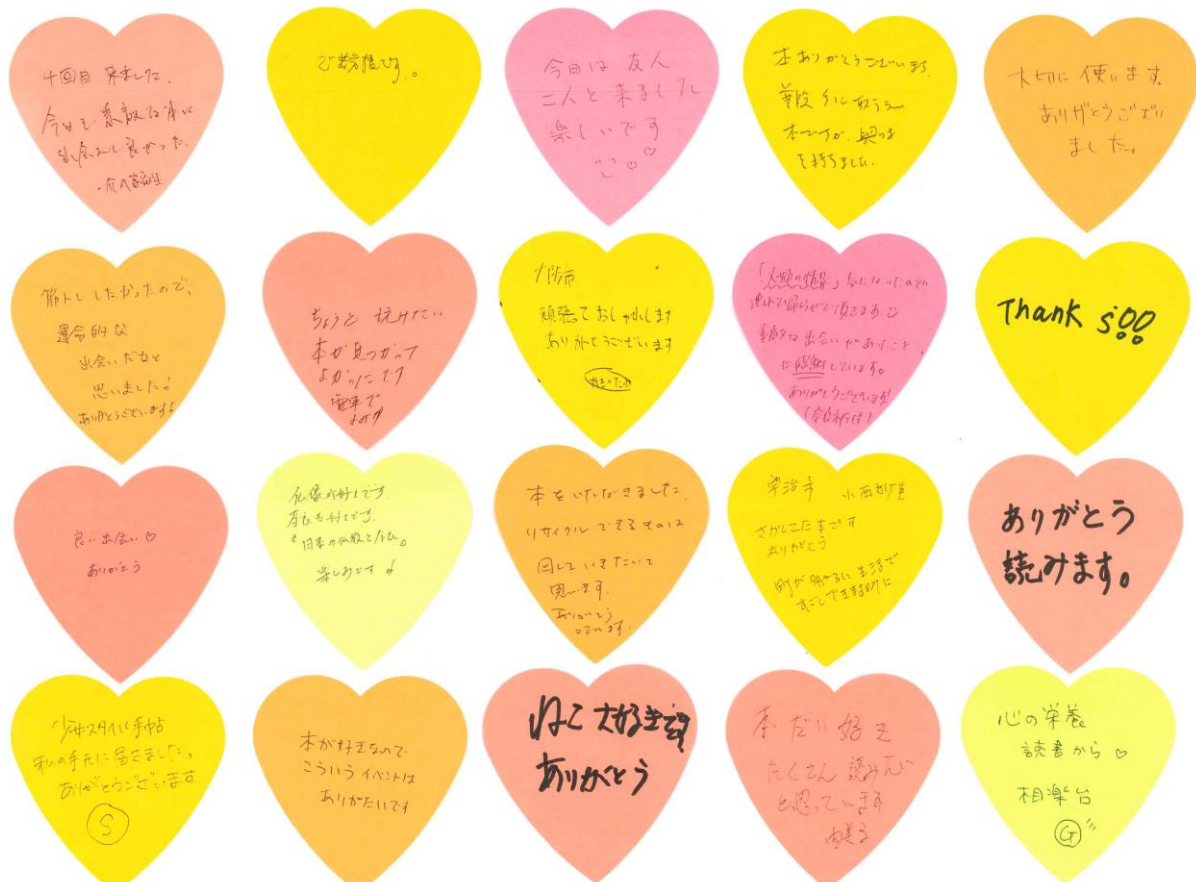 十回目 来ました。
今日も素敵な本に
出会えて良かった。
ご苦労様です。
今日は 友人
二人と来ました
楽しいです
本ありがとうございます。
本ですが、興味
を持ちました。
大切に 使います。
ありがとうござい
ました。
筋トレしたかったので、
運命的な
出会いだなと
思いました!
ありがとうございます!
ちょうど 読みたい
本が見つかって
よかったです
電車で
頑張っておしゃれします
ありがとうございます
連れて帰らせて頂きます
出会いがあったこと
に感謝しています。
ありがとうございます!
Thank s!!
良い出会い♡
ありがとう
仏像が好きです。
奈良も好きです。
楽しみです
本をいただきました。
リサイクルできるものは
回していきたいと
思います。
ありがとう
ございます。
宇治市
さがしてた本です
ありがとう
町が明るい生活で
ありがとう
読みます。
私の手元に届きました。
ありがとうございます。
S
本が好きなので
こういうイベントは
ありがたいです
ねこ大好きです
ありがとう
本だい好き
たくさん読みたい
と思っています
心の栄養
読書から♡
相楽台
G